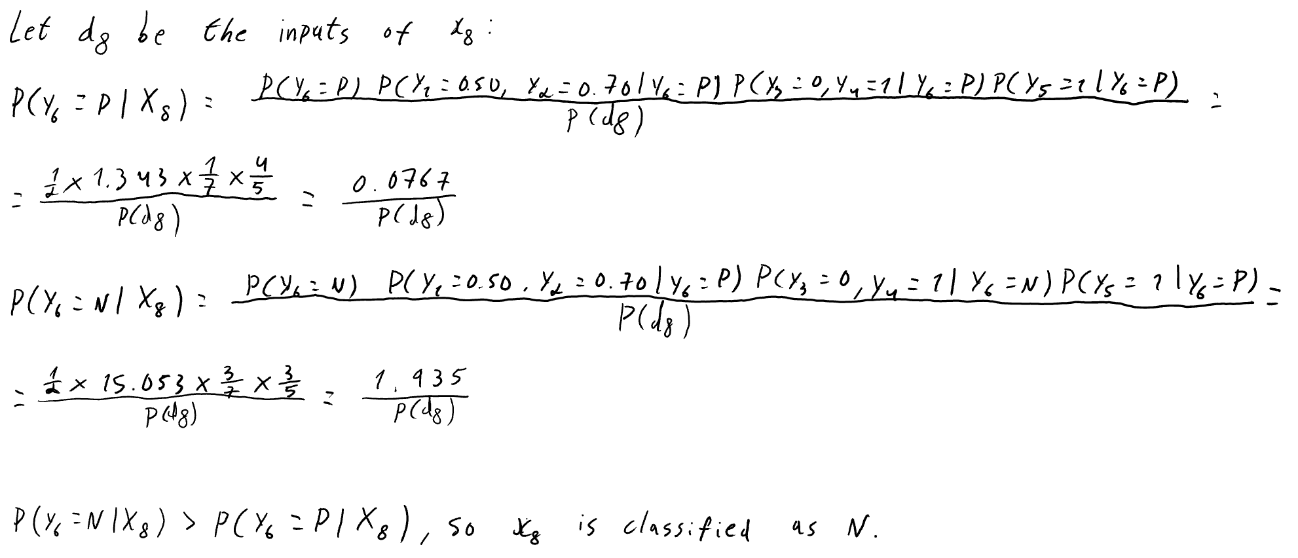 Let d8 be the inputs of x8:
P(Y6=P | X8) = P(Y6=P) P(Y1=0.50, Y2=0.70 | Y6=P) P(Y3=0, Y4=1 | Y6=P) P(Y5=1 | Y6=P) =
P(d8)
= 1/2 × 1.343 × 1/7 × 4/5 = 0.0767
P(d8) P(d8)
P(Y6=N | X8) = P(Y6=N) P(Y1=0.50, Y2=0.70 | Y6=P) P(Y3=0, Y4=1 | Y6=N) P(Y5=1 | Y6=P) =
P(d8)
= 1/2 × 15.053 × 3/7 × 3/5 = 1.935
P(d8) P(d8)
P(Y6=N | X8) > P(Y6=P | X8), so x8 is classified as N.